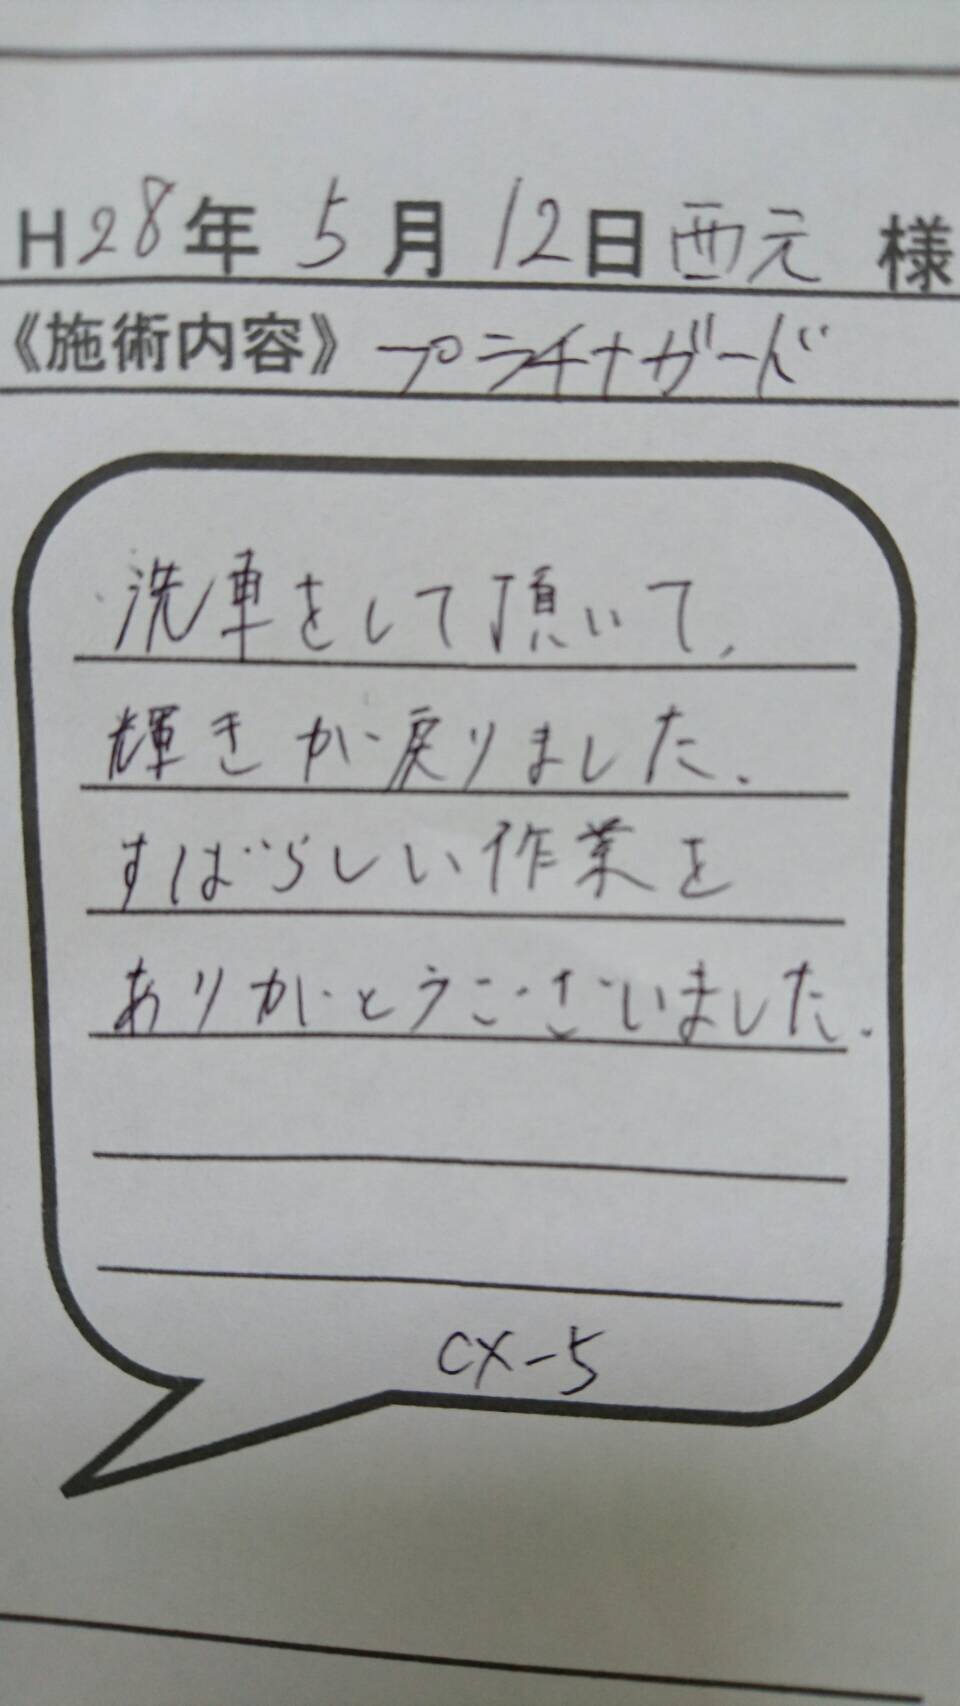 H28年 5月 12日 西元 様
《施術内容》 プラチナガード
洗車をして頂いて、
輝きが戻りました.
すばらしい作業を
ありがとうございました.
CX-5